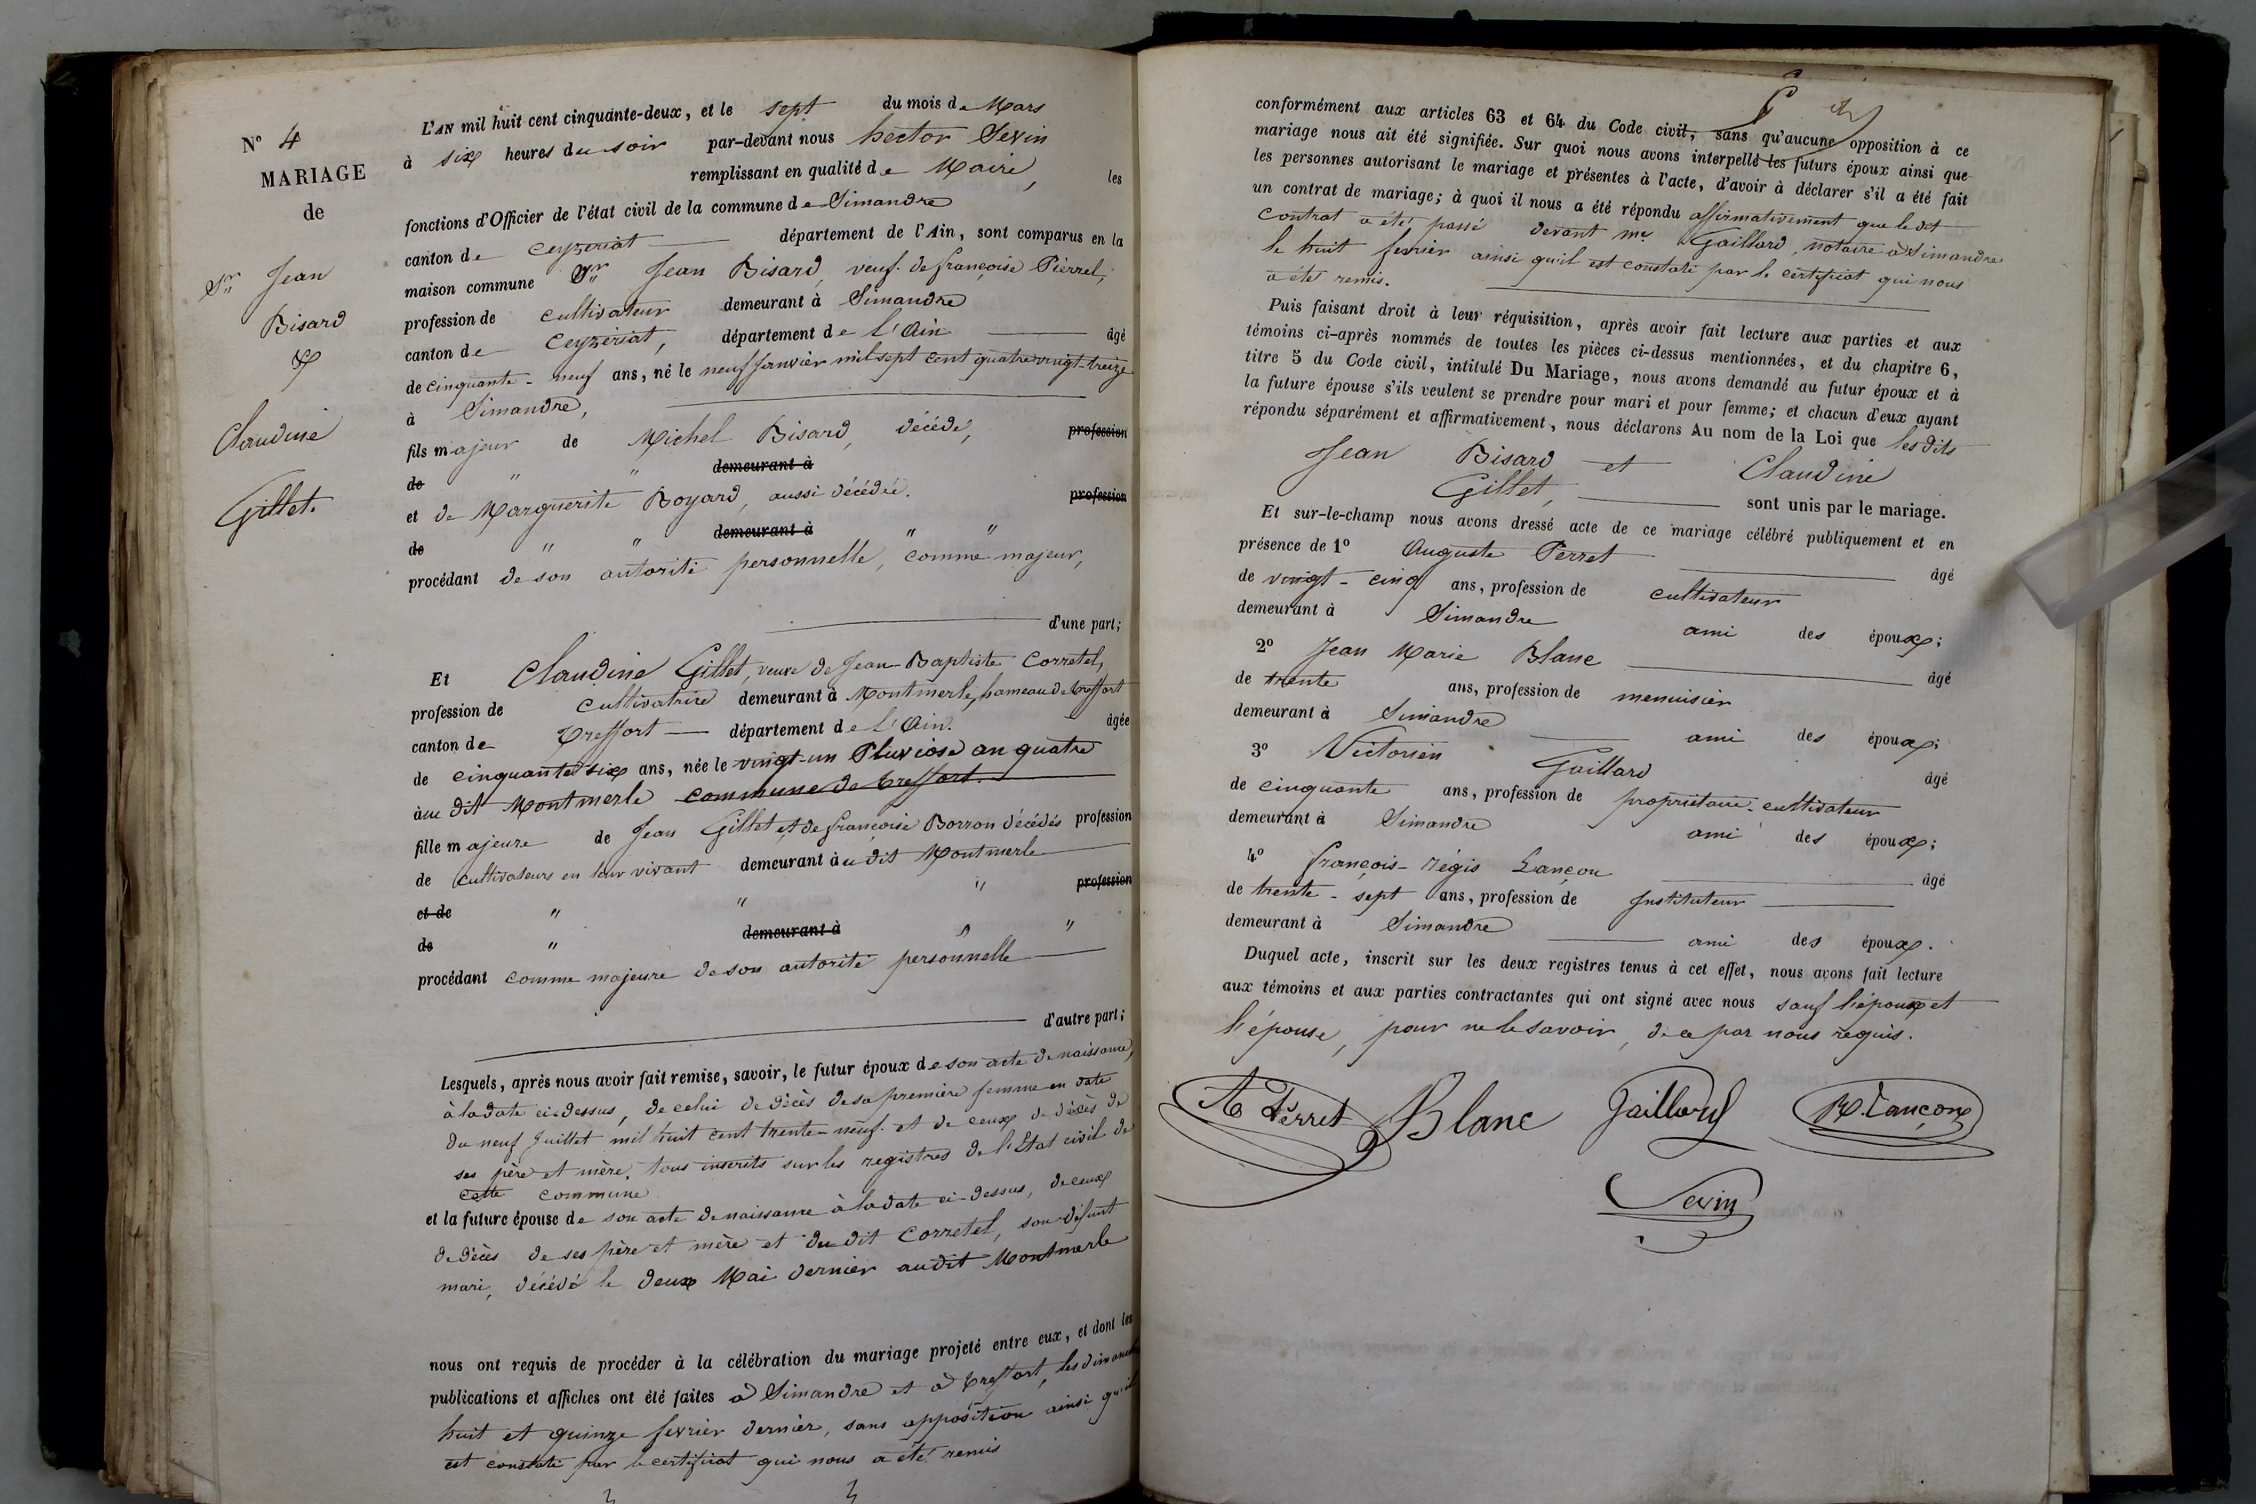 N° 4
MARIAGE
de
Sr Jean
Bisard
&
Claudine
Gillet.
L'AN mil huit cent cinquante-deux, et le sept du mois de Mars
à six heures du soir par-devant nous hector Sevin
remplissant en qualité de Maire, les
fonctions d'Officier de l'état civil de la commune de Simandre
canton de Ceyzeriat département de l'Ain, sont comparus en la
maison commune Sr Jean Bisard, veuf de françoise Pierrel,
profession de cultivateur demeurant à Simandre
canton de Ceyzeriat, département de l'Ain âgé
de cinquante-neuf ans, né le neuf Janvier mil sept cent quatre vingt-treize
à Simandre,
fils majeur de Michel Bisard, décédé, profession
de " " demeurant à
et de Marguerite Boyard, aussi décédée. profession
de " " demeurant à " "
procédant de son autorité personnelle, comme majeur,
d'une part;
Et Claudine Gillet, veuve de Jean-Baptiste Corretel,
profession de cultivatrice demeurant à Montmerle, hameau de treffort
canton de Treffort département de l'Ain. âgée
de cinquante six ans, née le vingt-un Pluviose an quatre
à au dit Montmerle commune de treffort.
fille majeure de Jean Gillet et de françoise Borron décédés profession
de cultivateurs en leur vivant demeurant à u dit Montmerle
et de " " " profession
de " demeurant à " "
procédant comme majeure de son autorité personnelle
d'autre part;
Lesquels, après nous avoir fait remise, savoir, le futur époux de son acte de naissance,
à la date ci-dessus, de celui de décès de sa première femme en date
du neuf Juillet mil huit cent trente-neuf. et de ceux de décès de
ses père et mère, tous inscrits sur les registres de l'Etat civil de
cette commune
et la future épouse de son acte de naissance à la date ci-dessus, de ceux
de décès de ses père et mère et du dit Corretel, son défunt
mari, décédé le deux Mai dernier audit Montmerle
nous ont requis de procéder à la célébration du mariage projeté entre eux, et dont les
publications et affiches ont été faites à Simandre et à treffort, les dimanches
huit et quinze fevrier dernier, sans opposition ainsi qu'il
est constaté par le certificat qui nous a été remis
conformément aux articles 63 et 64 du Code civil, sans qu'aucune opposition à ce
mariage nous ait été signifiée. Sur quoi nous avons interpellé les futurs époux ainsi que
les personnes autorisant le mariage et présentes à l'acte, d'avoir à déclarer s'il a été fait
un contrat de mariage; à quoi il nous a été répondu affirmativement que le dit
Contrat a été passé devant me Gaillard, notaire à Simandre
le huit fevrier ainsi qu'il est constaté par le certificat qui nous
a été remis.
Puis faisant droit à leur réquisition, après avoir fait lecture aux parties et aux
témoins ci-après nommés de toutes les pièces ci-dessus mentionnées, et du chapitre 6,
titre 5 du Code civil, intitulé Du Mariage, nous avons demandé au futur époux et à
la future épouse s'ils veulent se prendre pour mari et pour femme; et chacun d'eux ayant
répondu séparément et affirmativement, nous déclarons Au nom de la Loi que les dits
Jean Bisard et Claudine
Gillet, sont unis par le mariage.
Et sur-le-champ nous avons dressé acte de ce mariage célébré publiquement et en
présence de 1° Auguste Perret âgé
de vingt-cinq ans, profession de cultivateur
demeurant à Simandre ami des époux;
2° Jean Marie Blanc âgé
de trente ans, profession de menuisier
demeurant à Simandre ami des époux;
3° Victorien Gaillard âgé
de cinquante ans, profession de propriétaire-cultivateur
demeurant à Simandre ami des époux;
4° françois-régis Lançon âgé
de trente-sept ans, profession de Instituteur
demeurant à Simandre ami des époux.
Duquel acte, inscrit sur les deux registres tenus à cet effet, nous avons fait lecture
aux témoins et aux parties contractantes qui ont signé avec nous sauf l'époux et
l'épouse, pour ne le savoir, de ce par nous requis.
A Perret Blanc Gaillard R. Lançon
Sevin